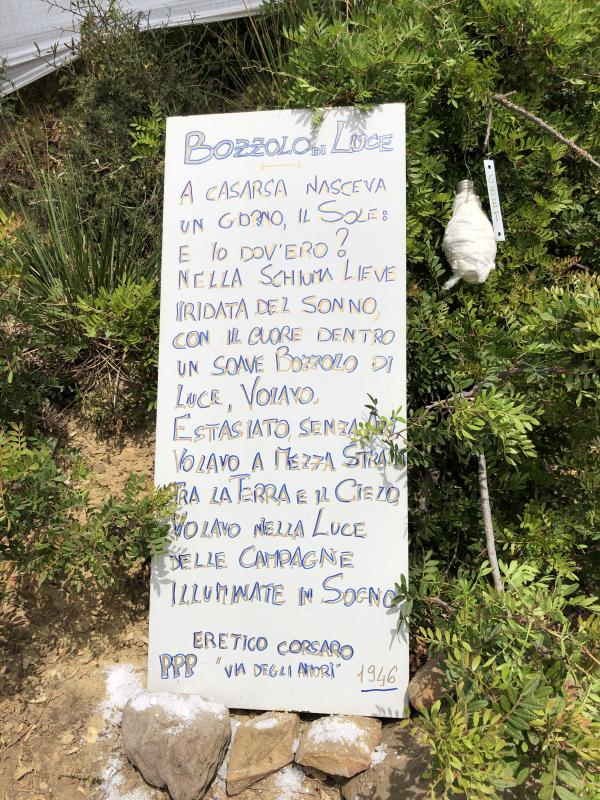 BOZZOLO DI LUCE
A CASARSA NASCEVA
UN GIORNO, IL SOLE:
E IO DOV'ERO?
NELLA SCHIUMA LIEVE
IRIDATA DEL SONNO,
CON IL CUORE DENTRO
UN SOAVE BOZZOLO DI
LUCE, VOLAVO.
ESTASIATO, SENZA
VOLAVO A MEZZA STRA
TRA LA TERRA E IL CIELO
VOLAVO NELLA LUCE
DELLE CAMPAGNE
ILLUMINATE IN SOGNO
ERETICO CORSARO
PPP "VIA DEGLI AMORI" 1946